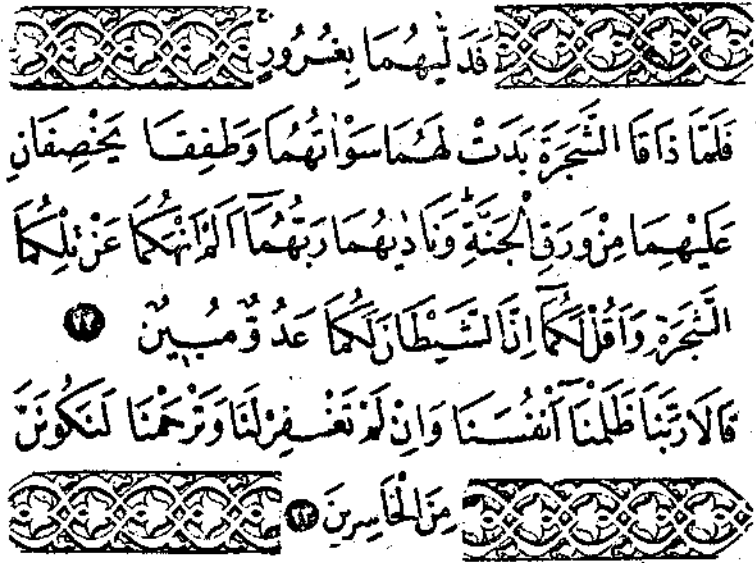 فَدَلّٰيهُمَا بِغُرُورٍۚ
فَلَمَّا ذَاقَا الشَّجَرَةَ بَدَتْ لَهُمَا سَوْاٰتُهُمَا وَطَفِقَا يَخْصِفَانِ
عَلَيْهِمَا مِنْ وَرَقِ الْجَنَّةِۜ وَنَادٰيهُمَا رَبُّهُمَٓا اَلَمْ اَنْهَكُمَا عَنْ تِلْكُمَا
الشَّجَرَةِ وَاَقُلْ لَكُمَٓا اِنَّ الشَّيْطَانَ لَكُمَا عَدُوٌّ مُبِينٌ ٢٢
قَالَا رَبَّنَا ظَلَمْنَٓا اَنْفُسَنَا وَاِنْ لَمْ تَغْفِرْ لَنَا وَتَرْحَمْنَا لَنَكُونَنَّ
مِنَ الْخَاسِرِينَ ٢٣